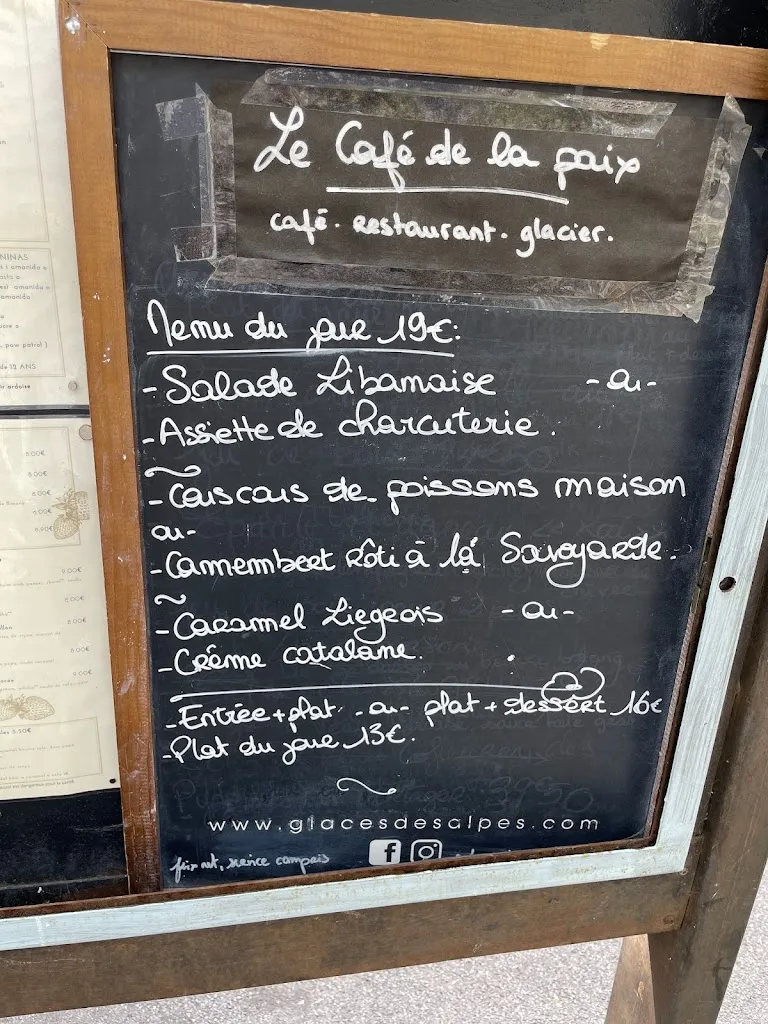 Le Café de la paix
café. restaurant. glacier.
Menu du jour 19€:
- Salade Libanaise -ou-
- Assiette de charcuterie.
- Couscous de poissons maison
ou-
- Camembert rôti à la Savoyarde.
- Caramel Liegeois -ou-
- Crème catalane.
- Entrée + plat -ou- plat + dessert 16€
- Plat du jour 13€.
www.glacesdesalpes.com
prix net, service compris
NINAS
6.00€
8.00€
6.00€
6.00€